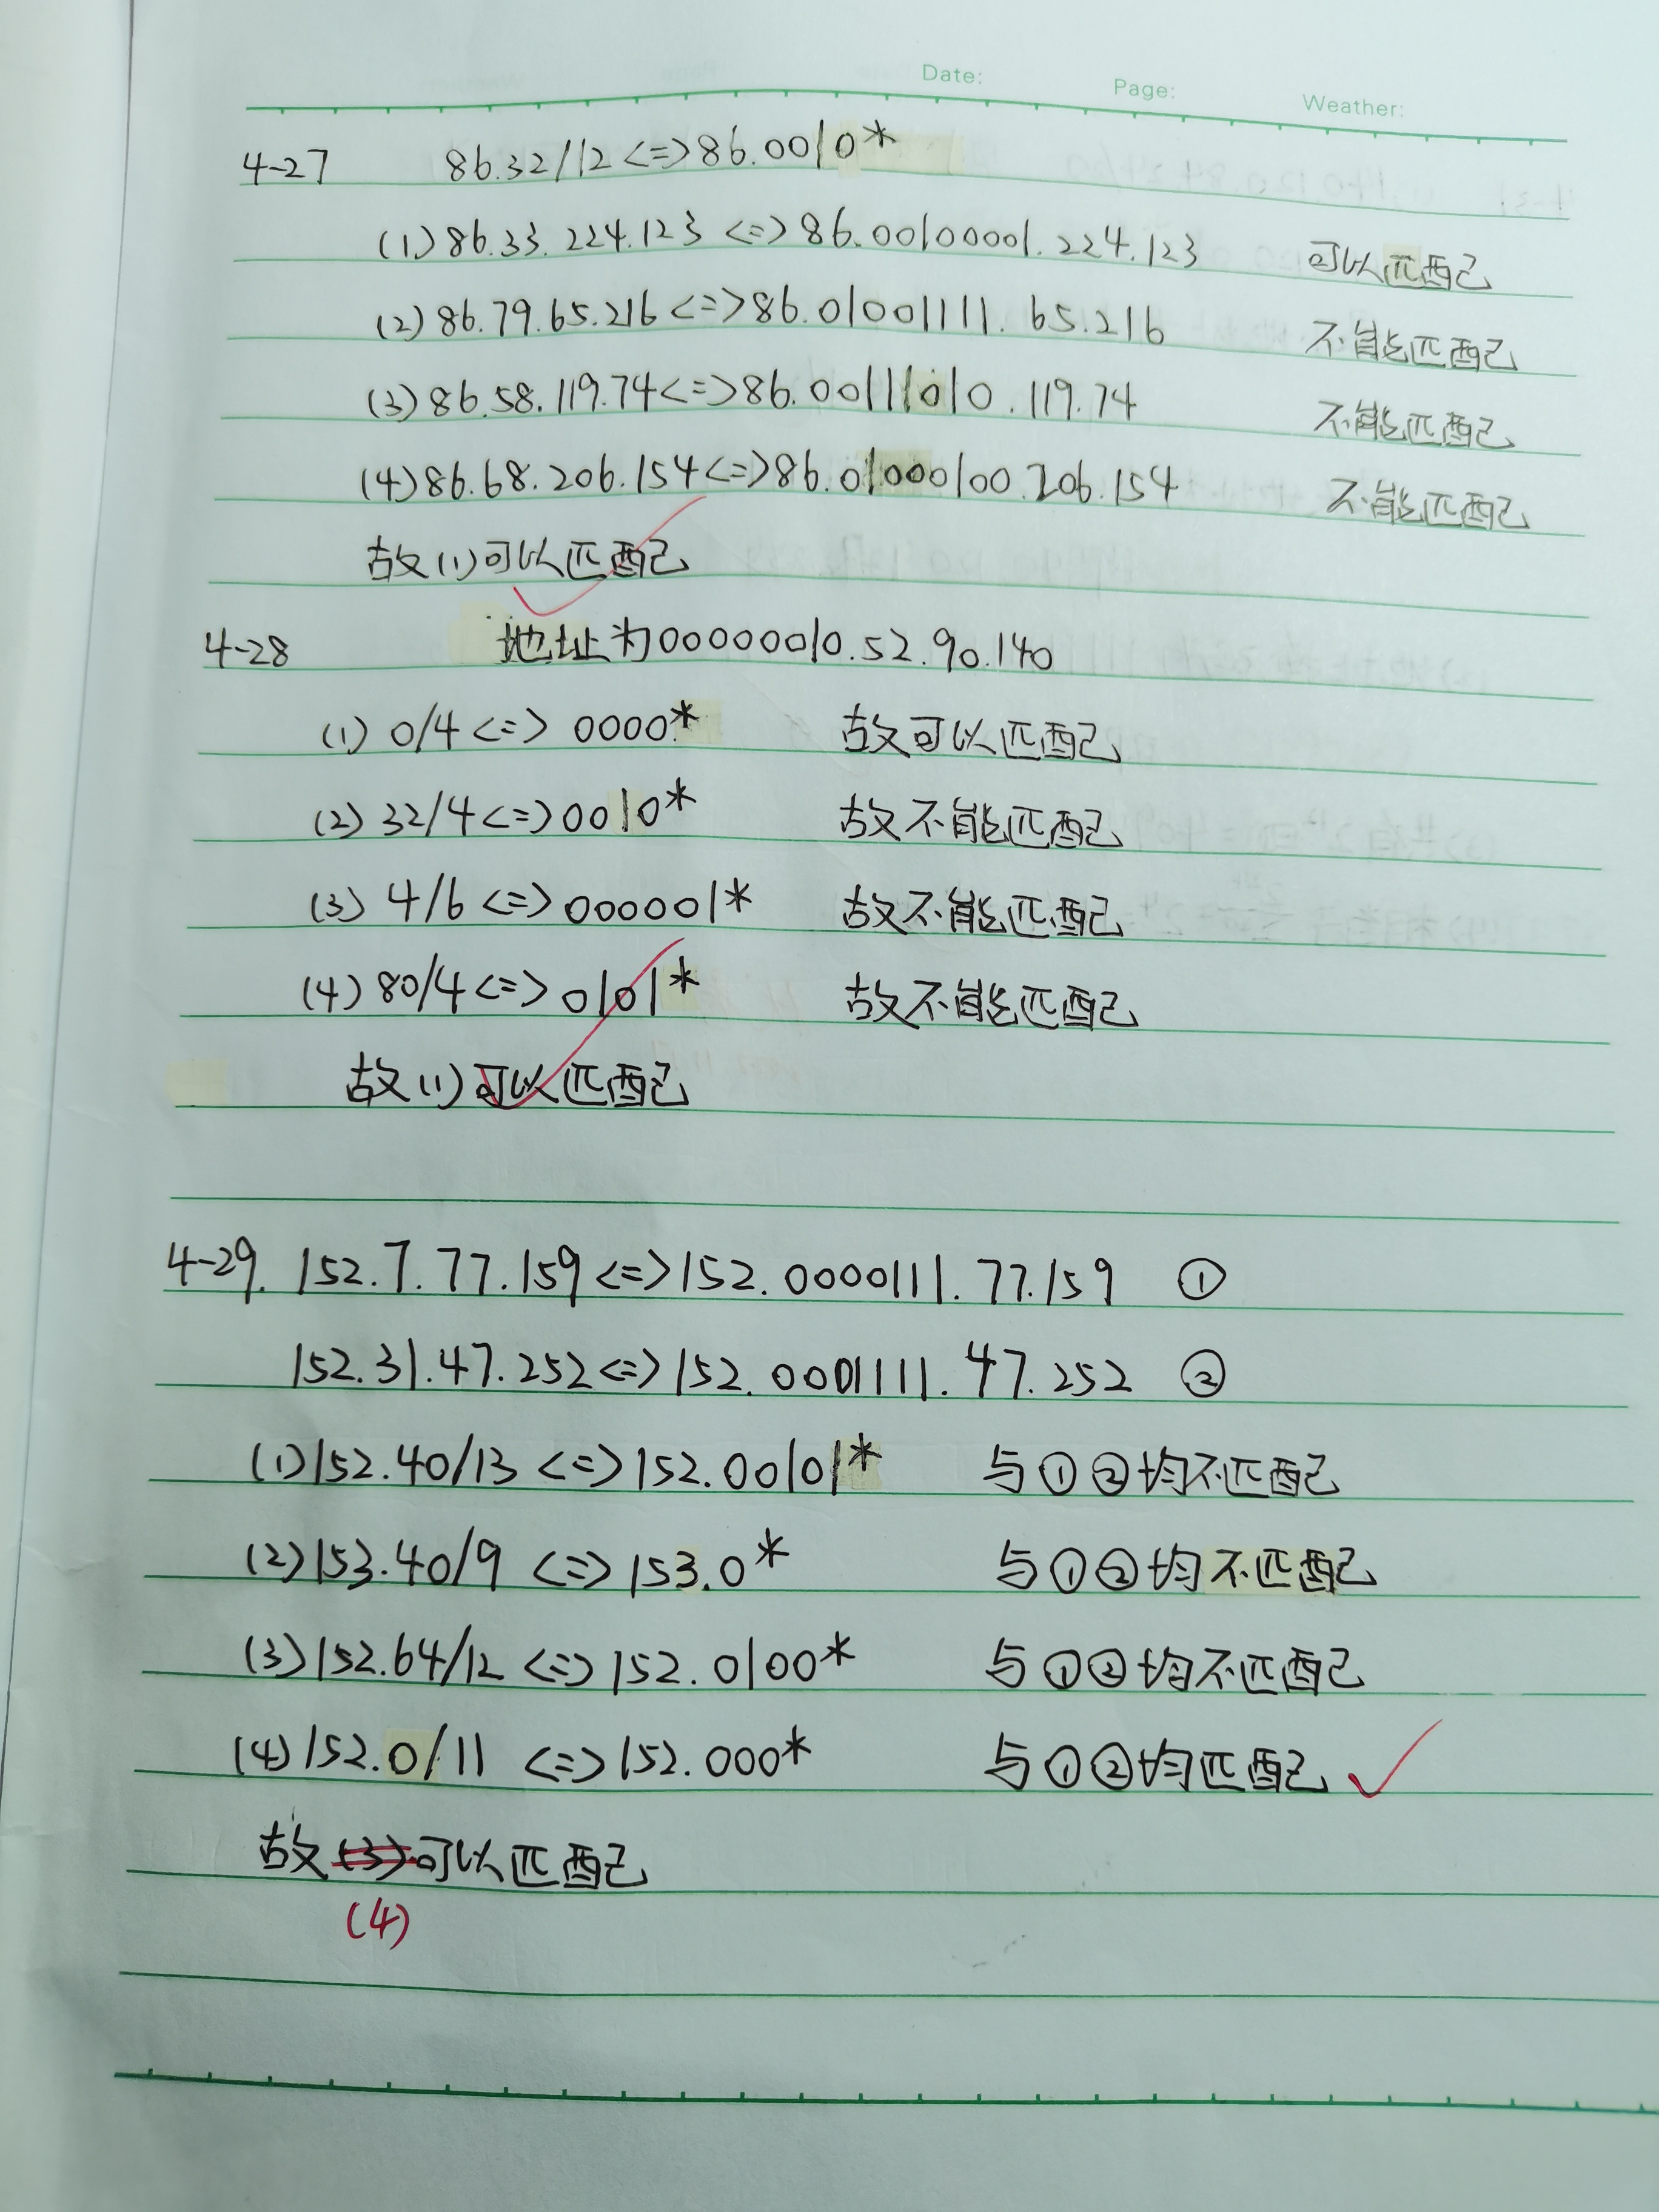 Date: Page: Weather:
4-27 86.32/12 <=> 86.0010*
(1) 86.33.224.123 <=> 86.00100001.224.123 可以匹配
(2) 86.79.65.216 <=> 86.01001111.65.216 不能匹配
(3) 86.58.119.74 <=> 86.00111010.119.74 不能匹配
(4) 86.68.206.154 <=> 86.01000100.206.154 不能匹配
故(1)可以匹配
4-28 地址为00000010.52.90.140
(1) 0/4 <=> 0000* 故可以匹配
(2) 32/4 <=> 0010* 故不能匹配
(3) 4/6 <=> 000001* 故不能匹配
(4) 80/4 <=> 0101* 故不能匹配
故(1)可以匹配
4-29. 152.7.77.159 <=> 152.00000111.77.159 ①
152.31.47.252 <=> 152.00011111.47.252 ②
(1) 152.40/13 <=> 152.00101* 与①②均不匹配
(2) 153.40/9 <=> 153.0* 与①②均不匹配
(3) 152.64/12 <=> 152.0100* 与①②均不匹配
(4) 152.0/11 <=> 152.000* 与①②均匹配
故(3)可以匹配
(4)